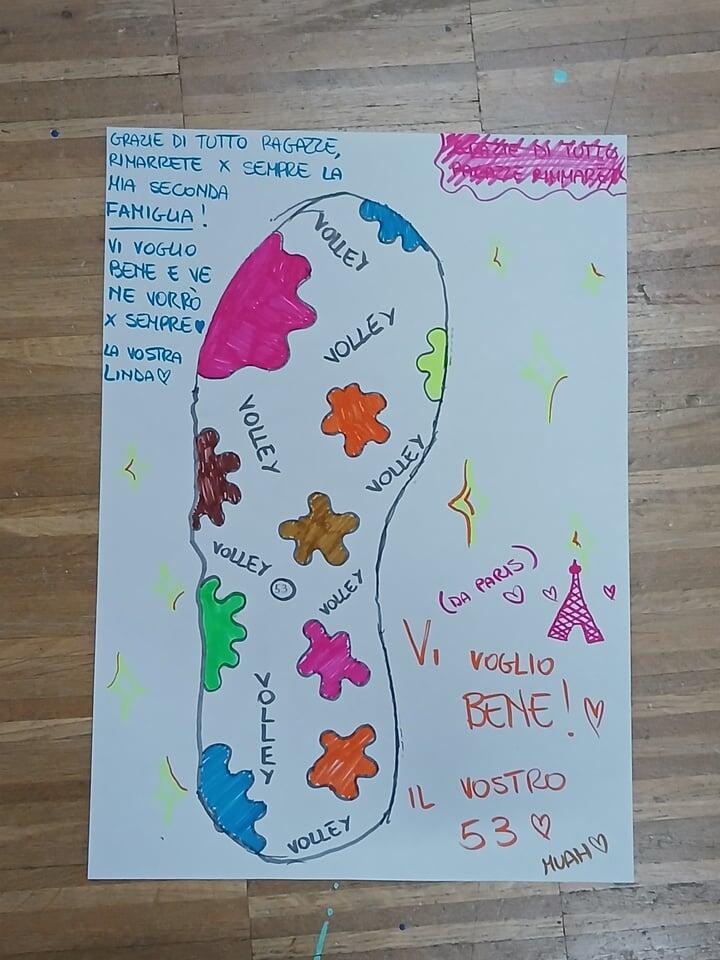 GRAZIE DI TUTTO RAGAZZE,
RIMARRETE X SEMPRE LA
MIA SECONDA
FAMIGLIA!
VI VOGLIO
BENE E VE
NE VORRÒ
X SEMPRE
LA VOSTRA
LINDA
GRAZIE DI TUTTO
RAGAZZE
VOLLEY
VOLLEY
VOLLEY
VOLLEY
VOLLEY
53
VOLLEY
VOLLEY
VOLLEY
(DA PARIS)
VI VOGLIO
BENE!
IL VOSTRO
53
MUAH